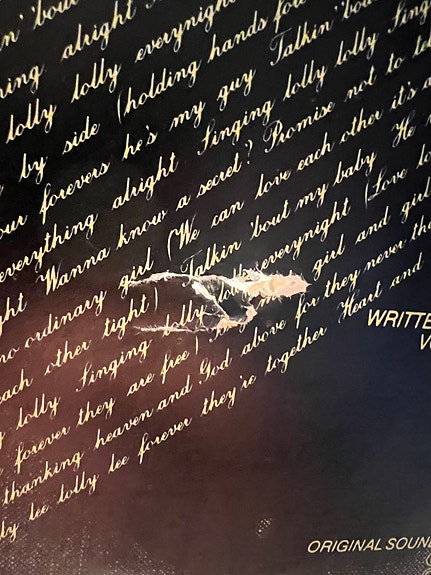 in' 'bout
ning alright
lolly everynight
by side (holding hands fo
our forevers he's my guy Talkin' 'bou
everything alright Singing lolly lolly Sing
ght Wanna know a secret? Promise not to tel
no ordinary girl (We can love each other it's a
each other tight) Talkin 'bout my baby He
lolly Singing lolly everynight (Love lo
forever they are free) girl and girl
thanking heaven and God above for they never tha
lly lee lolly lee forever they're together Heart and
WRITTE
ORIGINAL SOUN